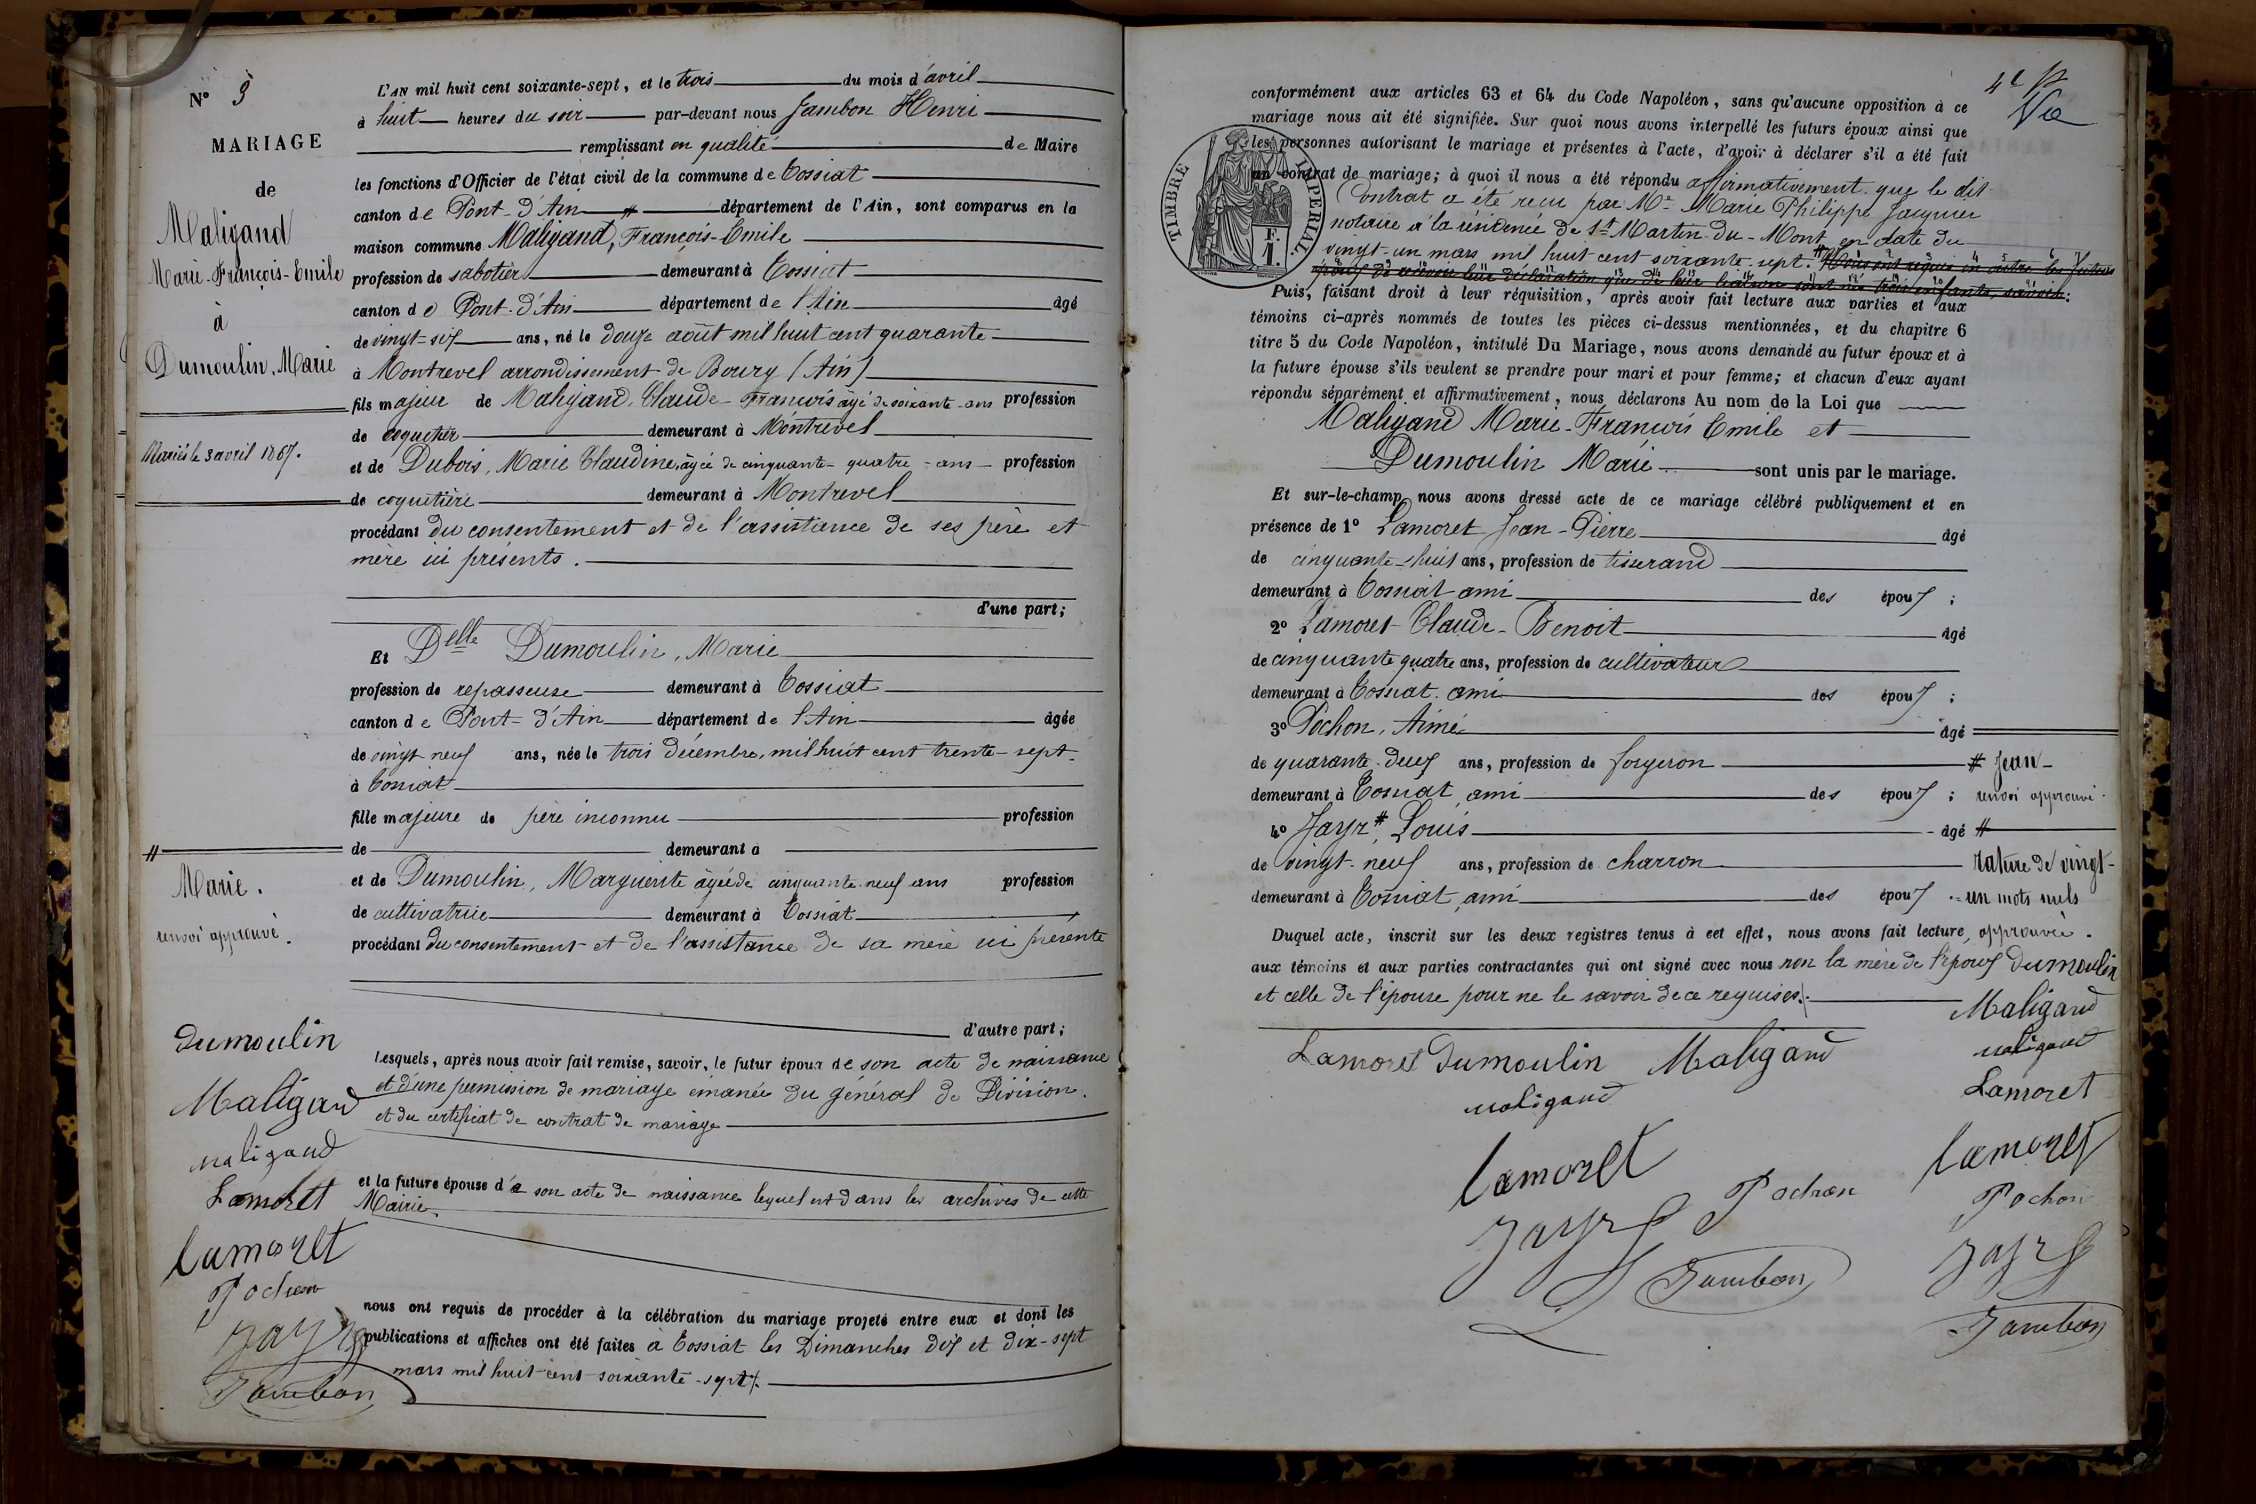 N° 9
MARIAGE
de
Maligand
Marie-François-Emile
à
Dumoulin, Marie
Mariés le 3 avril 1867.
L'AN mil huit cent soixante-sept, et le trois du mois d'avril
à huit heures du soir par-devant nous Jambon Henri
remplissant en qualité de Maire
les fonctions d'Officier de l'état civil de la commune de Tossiat
canton de Pont-d'Ain département de l'Ain, sont comparus en la
maison commune Maligand, François-Emile
profession de sabotier demeurant à Tossiat
canton de Pont-d'Ain département de l'Ain âgé
de vingt-six ans, né le douze août mil huit cent quarante
à Montrevel arrondissement de Bourg (Ain)
fils majeur de Maligand, Claude-François âgé de soixante ans profession
de coquetier demeurant à Montrevel
et de Dubois, Marie Claudine, âgée de cinquante-quatre-ans profession
de coquetière demeurant à Montrevel
procédant du consentement et de l'assistance de ses père et
mère ici présents.
d'une part;
Et Delle Dumoulin, Marie
profession de repasseuse demeurant à Tossiat
canton de Pont-d'Ain département de l'Ain âgée
de vingt neuf ans, née le trois décembre, mil huit cent trente-sept
à Tossiat
fille majeure de père inconnu profession
de demeurant à
et de Dumoulin, Marguerite âgée de cinquante-neuf ans profession
de cultivatrice demeurant à Tossiat
procédant du consentement et de l'assistance de sa mère ici présente
d'autre part;
Lesquels, après nous avoir fait remise, savoir, le futur époux de son acte de naissance
et d'une permission de mariage émanée du général de Division.
et du certificat de contrat de mariage
et la future épouse de son acte de naissance lequel est dans les archives de cette
Mairie.
nous ont requis de procéder à la célébration du mariage projeté entre eux et dont les
publications et affiches ont été faites à Tossiat les Dimanches dix et dix-sept
mars mil huit cent soixante-sept.
#
Marie.
renvoi approuvé.
Dumoulin
Maligand
maligand
Lamoret
Lamoret
Pochon
Jayr
Jambon
4e
conformément aux articles 63 et 64 du Code Napoléon, sans qu'aucune opposition à ce
mariage nous ait été signifiée. Sur quoi nous avons interpellé les futurs époux ainsi que
les personnes autorisant le mariage et présentes à l'acte, d'avoir à déclarer s'il a été fait
un contrat de mariage; à quoi il nous a été répondu affirmativement que le dit
Contrat a été reçu par Me Marie Philippe Jacquier
notaire à la résidence de St Martin-du-Mont en date du
vingt-un mars mil huit cent soixante-sept. # Nous ont requis en outre les futurs
époux de recevoir leur déclaration que de leur liaison sont nés trois enfants, savoir:
TIMBRE IMPERIAL.
1 F.
Puis, faisant droit à leur réquisition, après avoir fait lecture aux parties et aux
témoins ci-après nommés de toutes les pièces ci-dessus mentionnées, et du chapitre 6
titre 5 du Code Napoléon, intitulé Du Mariage, nous avons demandé au futur époux et à
la future épouse s'ils veulent se prendre pour mari et pour femme; et chacun d'eux ayant
répondu séparément et affirmativement, nous déclarons Au nom de la Loi que
Maligand Marie-François Emile et
Dumoulin Marie sont unis par le mariage.
Et sur-le-champ nous avons dressé acte de ce mariage célébré publiquement et en
présence de 1° Lamoret Jean-Pierre âgé
de cinquante-huit ans, profession de tisserand
demeurant à Tossiat ami des époux ;
2° Lamoret Claude-Benoit âgé
de cinquante quatre ans, profession de cultivateur
demeurant à Tossiat ami des époux ;
3° Pochon, Aimé âgé
de quarante-deux ans, profession de forgeron
demeurant à Tossiat, ami des époux ;
4° Jayr # Louis âgé
de vingt-neuf ans, profession de charron
demeurant à Tossiat, ami des époux
Duquel acte, inscrit sur les deux registres tenus à cet effet, nous avons fait lecture
aux témoins et aux parties contractantes qui ont signé avec nous non la mère de l'époux
et celle de l'épouse pour ne le savoir de ce requises.
# Jean-
renvoi approuvé.
#
rature de vingt-
un mots nuls
approuvée.
Dumoulin
Maligand
maligand
Lamoret
Lamoret
Pochon
Jayr
Jambon
Lamoret Dumoulin Maligand
maligand
Lamoret
Pochon
Jayr
Jambon